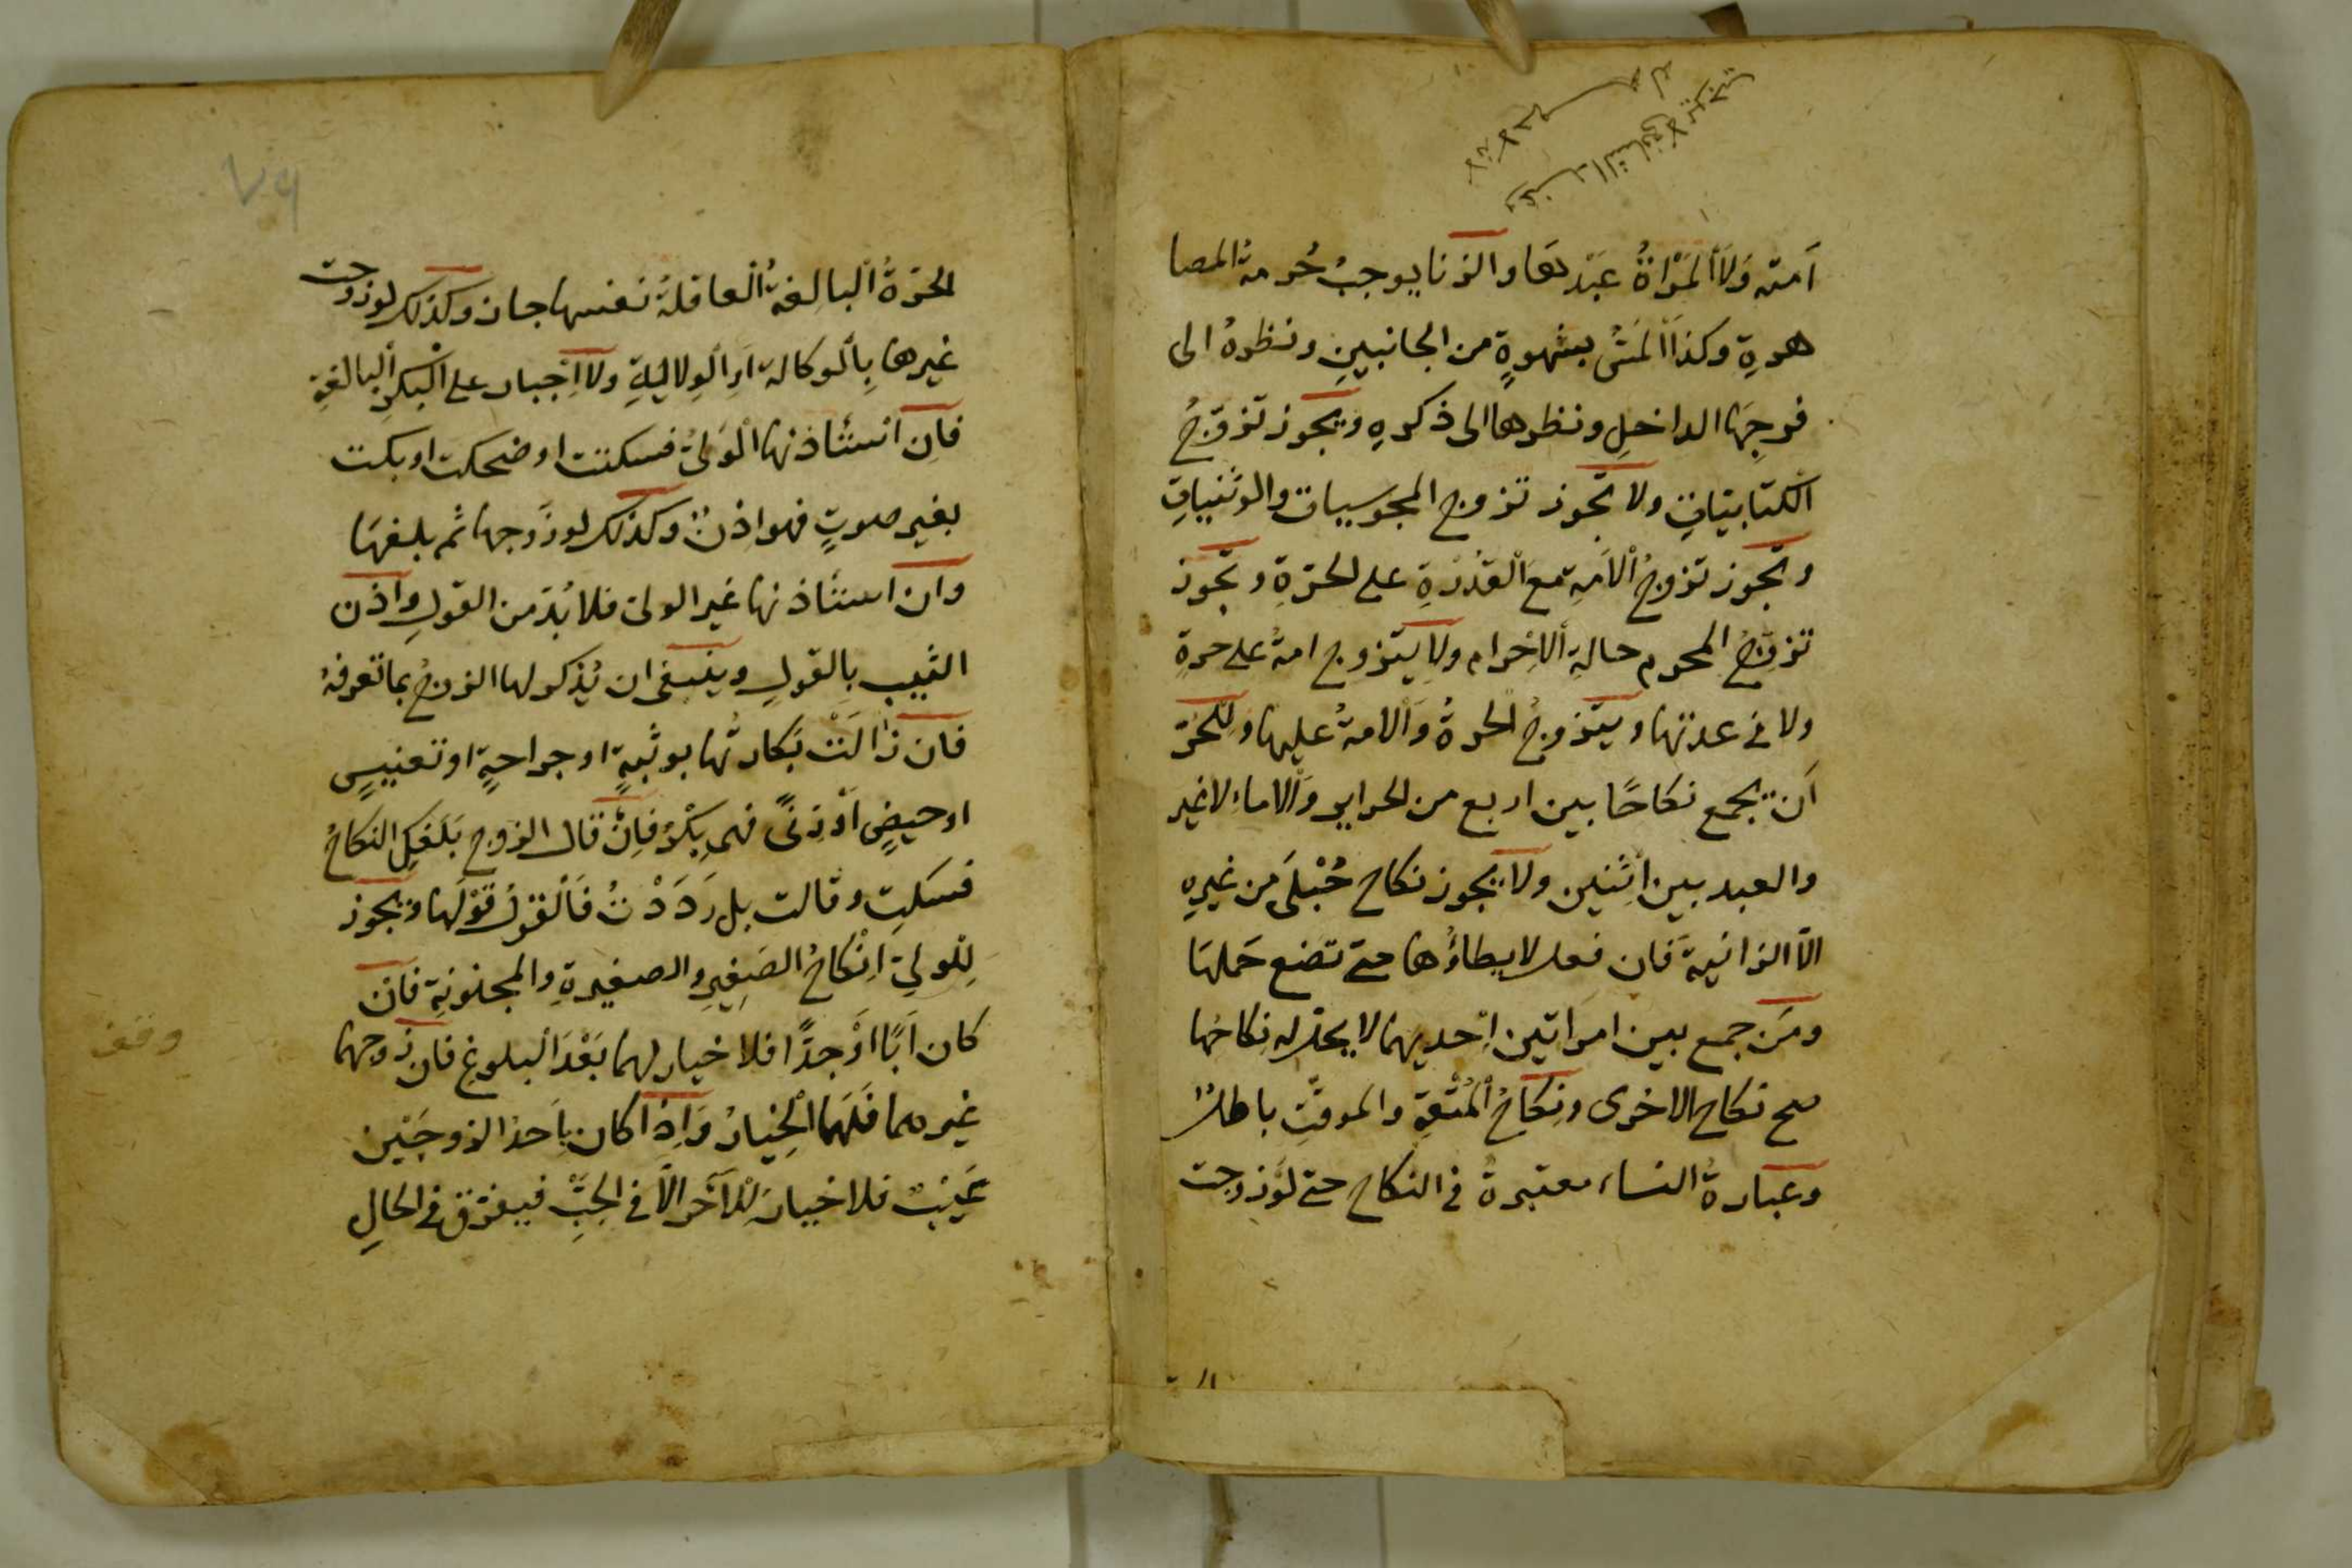 وعند الشافعي لا يوجب
اَمته وَلاَ اْلمَرْاةُ عَبْدهَا والزنا يوجبُ حُرمةُ المصا
هرةِ وكذا اْلمَسُّ بشهوةٍ من الجانبينِ ونظرهُ الى
فرجِهَا الداخلِ ونظرها الى ذكرهِ ويجوز تزوّجُ
الكتابيّاتِ ولا تجوز تزوج المجوسيات والوثنياتِ
وتجوز تزوجُ اْلاَمةِ مَعَ اْلقدْرَةِ على الحرّةِ وتجوز
تزوّجُ المحرم حالةِ اْلاِحْرام ولا يتزوج امةُ على حرةِ
ولا فى عدتها ويتزوجُ الحرةُ وَاْلامةُ عليها وللحُرّ
اَن يجمع نكاحًا بين اربع من الحراير وَاْلاماءِ لا غير
والعبد بين اثنين ولا يجوز نكاح حُبْلَى من غيرِهِ
الاّ الزانيةَ فان فعل لا يطاؤُها حتى تضع حَملهَا
ومَن جمع بين امراتين اِحديهما لا يحلّ له نكاحُها
صح نكاح الاخرى ونِكاحُ اْلمُتْعَةِ والموقّتِ باطلٌ
وعبارةُ النساء معتبرةٌ فى النكاح حتى لَوْ زوجت
٧٩
الحُرّةُ اْلبالِغةُ اْلعاقلةُ نفسها جاز وكذلك لو زوجت
غيرها بِاْلوكالة اَوِ اْلوِلايَةِ ولا اِجبار على اْلبِكرِ اْلبالغةِ
فاِن استئاذنها الْوَلىُّ فسكتت او ضحكت او بكت
بغير صوتٍ فهو اذنٌ وكذلك لو زوجها ثم بلغهَا
وان استئاذنها غير الولى فلا بُدّ من القولِ واذن
الثيب بِالقولِ وينبغى ان يُذكر لها الزوجُ بما تعرفهُ
فان زالَتْ بكارتُها بوثبةٍ او جراحةٍ او تعنيسٍ
او حيضٍ اَوْ زنًى فهى بِكْرٌ فاِنْ قال الزوج بَلَغكِ النكاحُ
فسَكتِ وقالت بل رَدَدْتُ فَاْلقولُ قوْلُها ويجوز
لِلْولِيّ اِنكاحُ الصَغِيرِ والصغيرةِ والمجنونةِ فان
كان اَبًا اَوْ جدًّا فلا خيار لهما بَعْدَ البلوغِ فان زوجهما
غيرهما فَلَهُمَا الْخِيارُ وَاِذا كان بِاَحَدِ الزوجَيْن
عَيْبٌ فلا خيارَ لْلآخَرِ الاّ فى الجَبِّ فيفرّق فى الحالِ
وقف